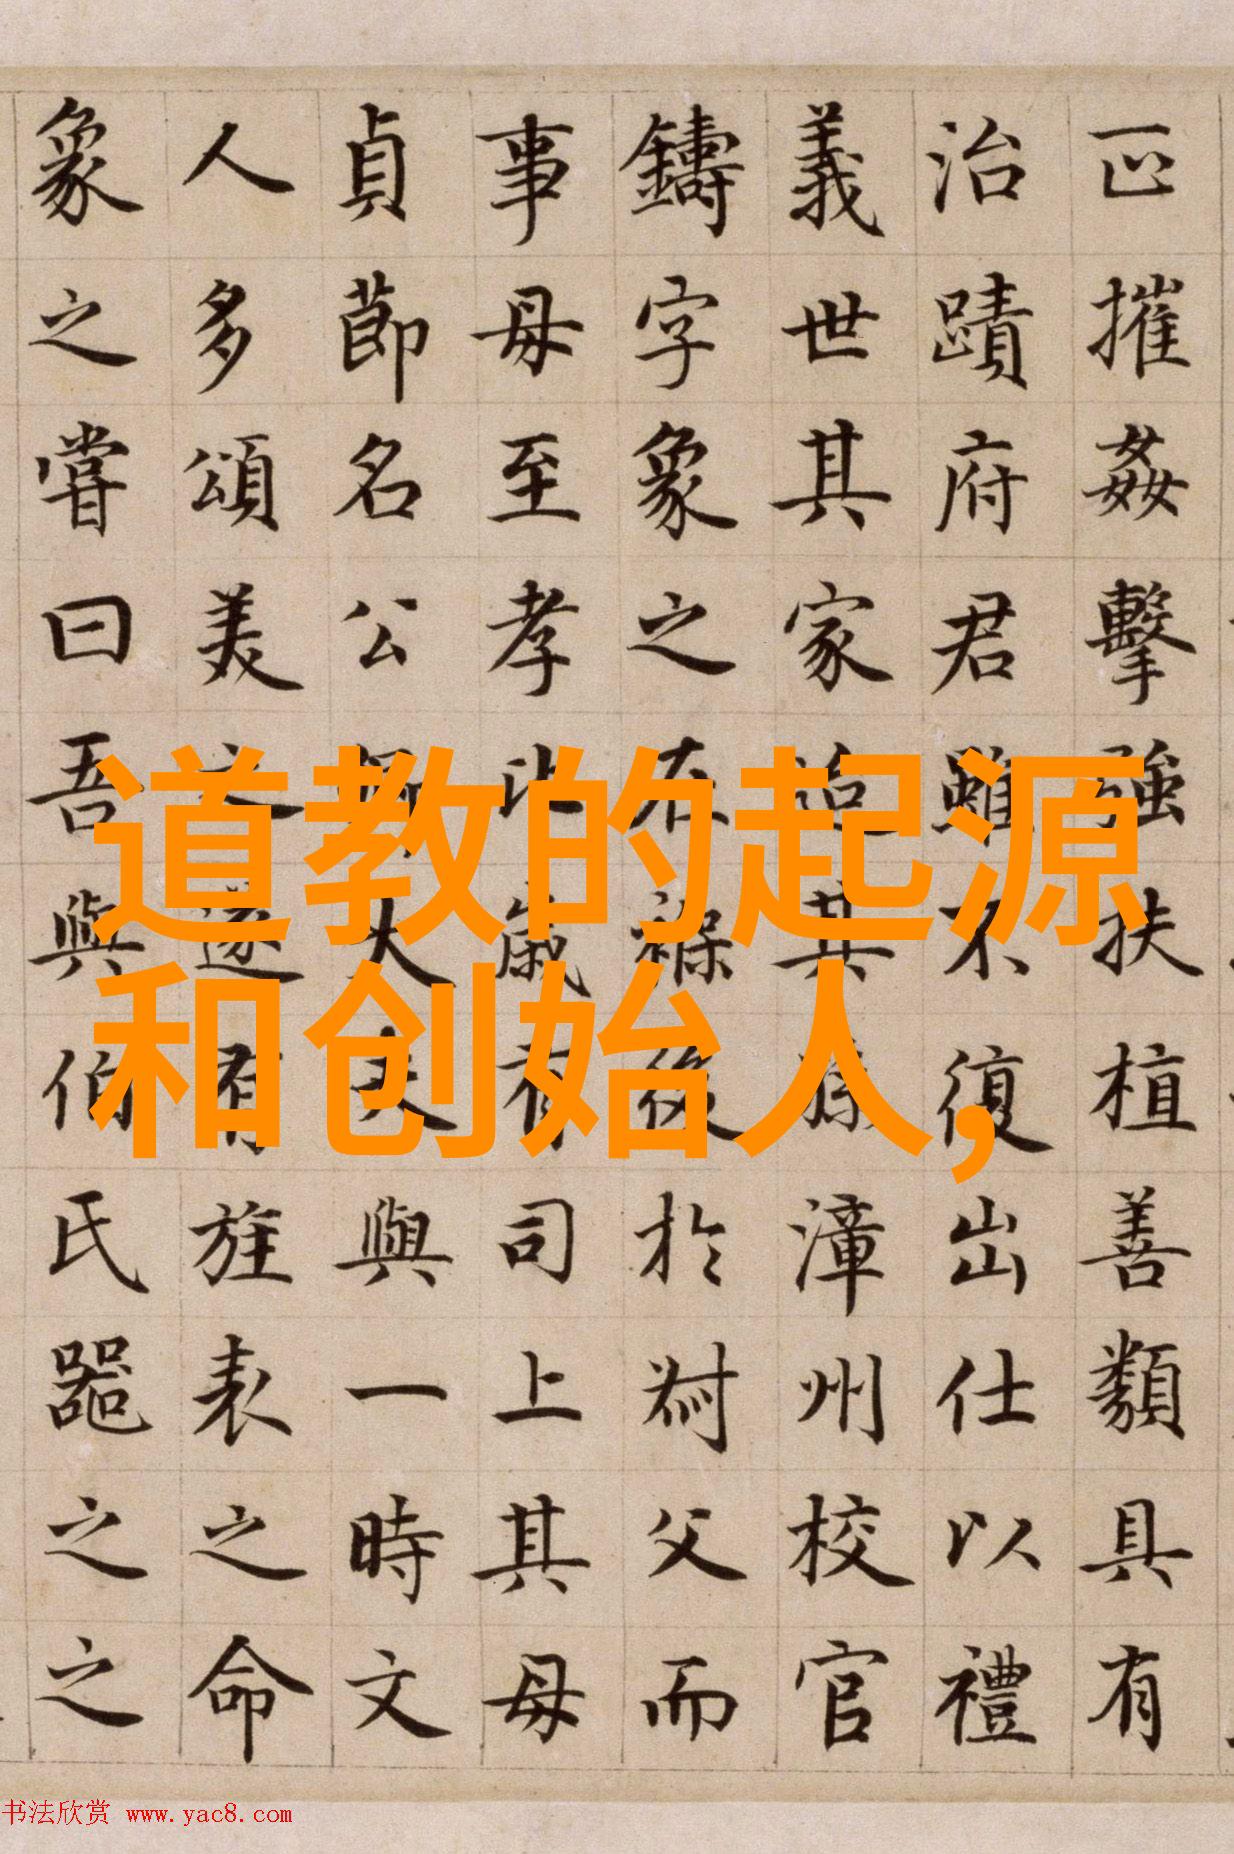 道教的起源
和创始人,
正摧姦擊強扶植善類具有
治蹟府君雖不復出仕以禮
義世其家追其孫漳州校官
鑄字象之在褓後於父而
事母至孝比歲有司上其母
貞節名公卿大夫與一時文
人多頌美之遂有旌表之命
象之嘗曰吾與伯氏器之之
书法欣赏 www.yac8.com